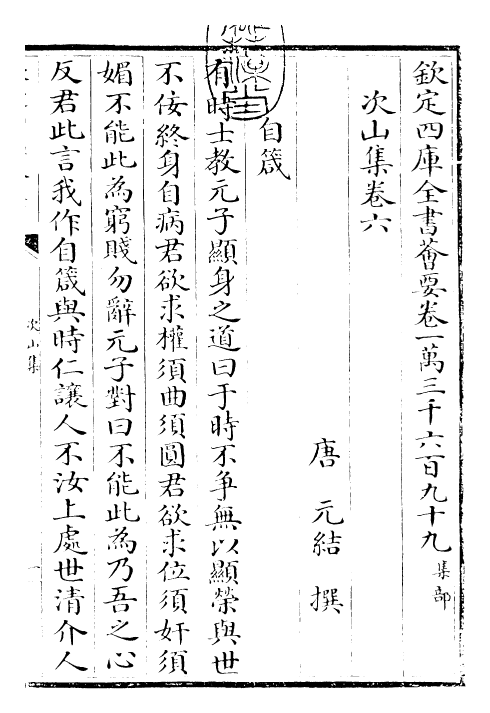 欽定四庫全書薈要卷一萬三千六百九十九集部
次山集卷六
唐 元結 撰
自箴
有時士教元子顯身之道曰于時不争無以顯榮與世
不佞終身自病君欲求權須曲須圓君欲求位須奸須
媚不能此為窮賤勿辭元子對曰不能此為乃吾之心
反君此言我作自箴與時仁讓人不汝上處世清介人
次山集
一